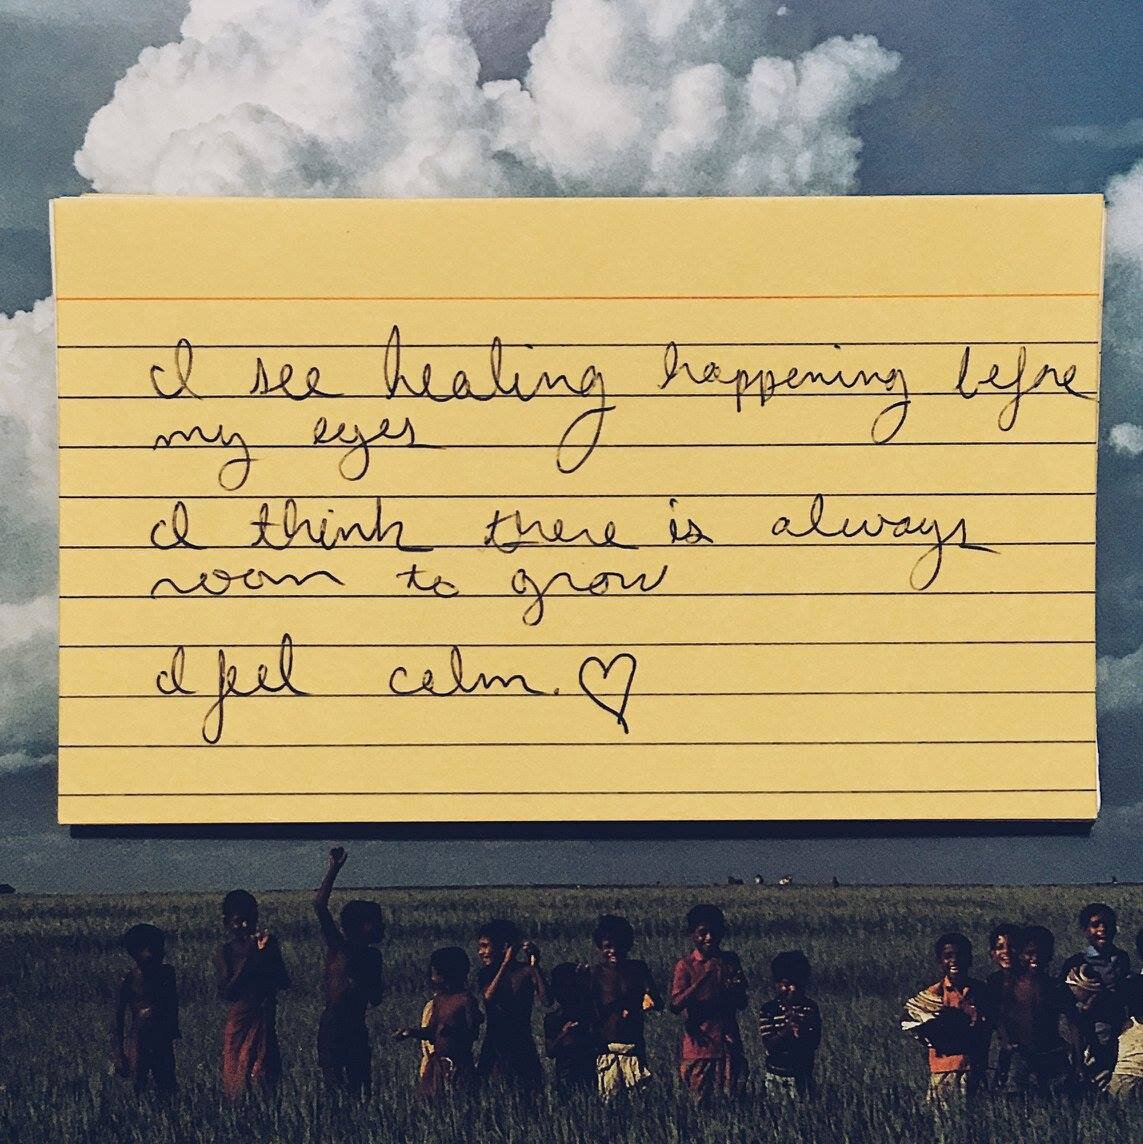 I see healing happening before
my eyes
I think there is always
room to grow
I feel calm. ♡